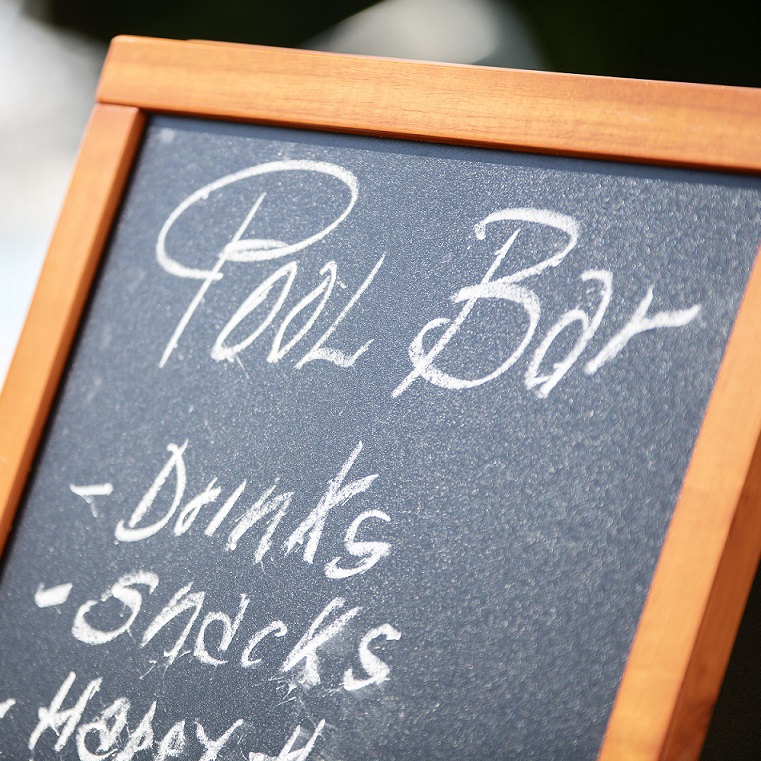 Pool Bar
- Drinks
- Snacks
- Happy H